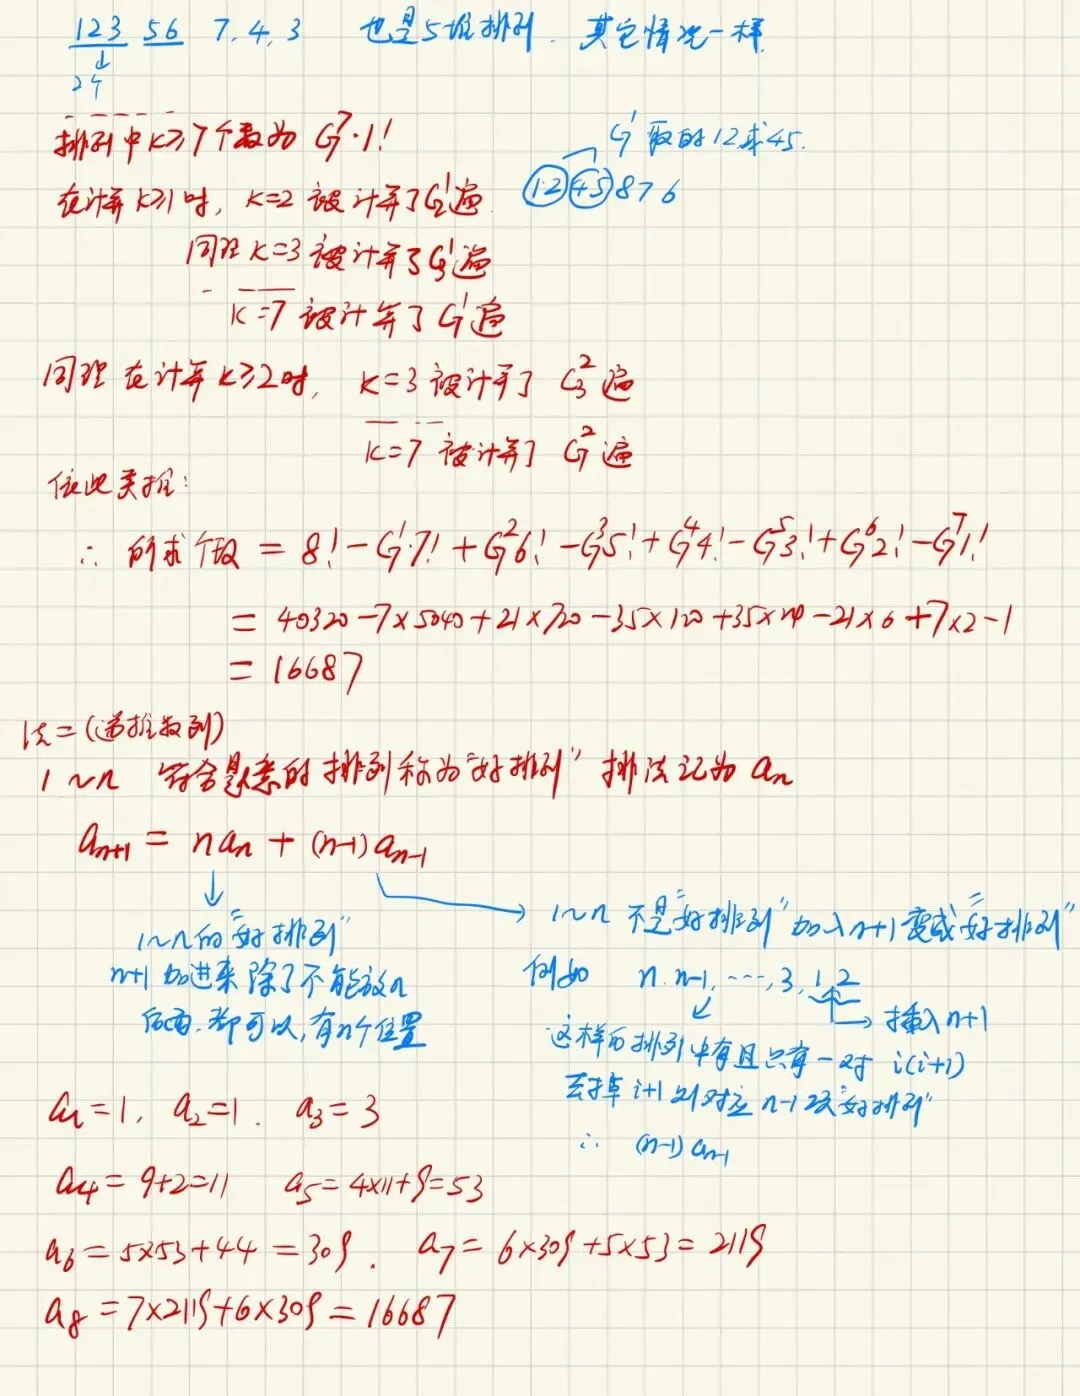 123 56 7, 4, 3 也是5堆排列. 其它情况一样.
↓
2个
排列中K≥7个数为 C₇⁷·1!
C₇¹取的12或45.
(12)(45)876
在计算K≥1时, K=2 被计算了C₂¹遍
同理 K=3 被计算了C₃¹遍
K=7 被计算了 C₇¹遍
同理 在计算K≥2时, K=3 被计算了 C₃²遍
K=7 被计算了 C₇²遍
依此类推:
∴ 所求个数 = 8! - C₇¹7! + C₇²6! - C₇³5! + C₇⁴4! - C₇⁵3! + C₇⁶2! - C₇⁷1!
= 40320 - 7×5040 + 21×720 - 35×120 + 35×24 - 21×6 + 7×2 - 1
= 16687
法二(递推数列)
1~n 符合题意的排列称为"好排列" 排法记为 aₙ
aₙ₊₁ = naₙ + (n-1)aₙ₋₁
↓
1~n的"好排列"
n+1加进来除了不能放n
后面,都可以,有n个位置
→ 1~n 不是"好排列"加入n+1变成"好排列"
例如 n. n-1, ···, 3, 1, 2
→ 插入n+1
这样的排列中有且只有一对 i(i+1)
去掉 i+1 则对应 n-1 项"好排列"
∴ (n-1)aₙ₋₁
a₁=1, a₂=1. a₃=3
a₄=9+2=11 a₅=4×11+9=53
a₆=5×53+44=309. a₇=6×309+5×53=2119
a₈=7×2119+6×309=16687